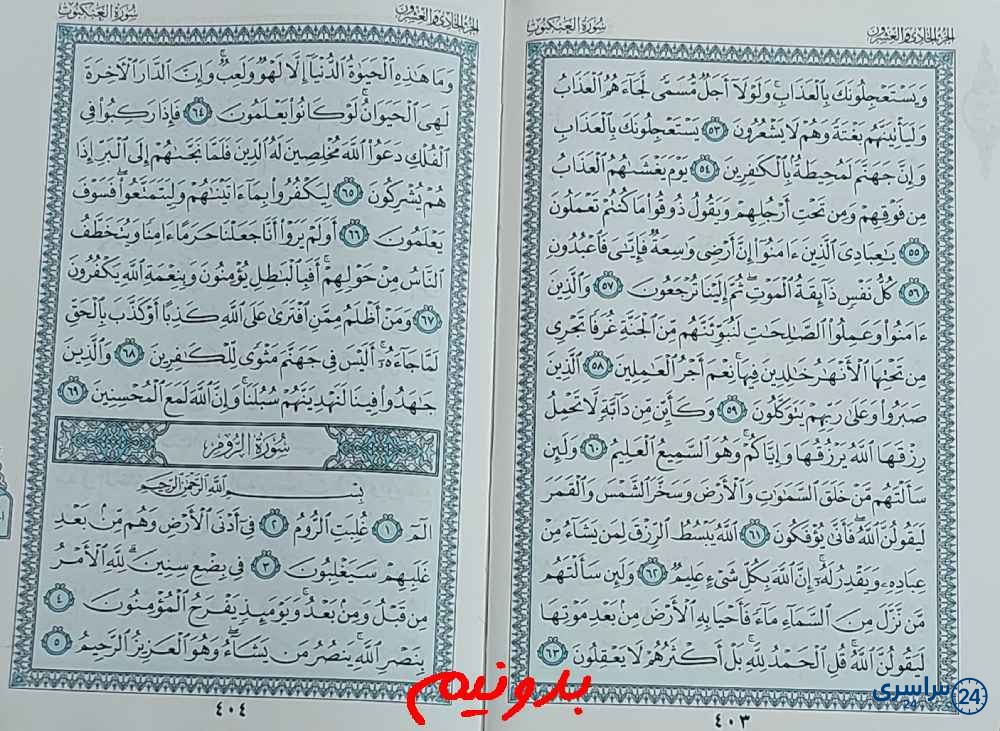 الجزء الحادي والعشرون
سورة العنكبوت
وَيَسْتَعْجِلُونَكَ بِالْعَذَابِ وَلَوْلَا أَجَلٌ مُّسَمًّى لَّجَاءَهُمُ الْعَذَابُ
وَلَيَأْتِيَنَّهُم بَغْتَةً وَهُمْ لَا يَشْعُرُونَ ٥٣ يَسْتَعْجِلُونَكَ بِالْعَذَابِ
وَإِنَّ جَهَنَّمَ لَمُحِيطَةٌ بِالْكَافِرِينَ ٥٤ يَوْمَ يَغْشَاهُمُ الْعَذَابُ
مِن فَوْقِهِمْ وَمِن تَحْتِ أَرْجُلِهِمْ وَيَقُولُ ذُوقُوا مَا كُنتُمْ تَعْمَلُونَ
٥٥ يَا عِبَادِيَ الَّذِينَ آمَنُوا إِنَّ أَرْضِي وَاسِعَةٌ فَإِيَّايَ فَاعْبُدُونِ
٥٦ كُلُّ نَفْسٍ ذَائِقَةُ الْمَوْتِ ثُمَّ إِلَيْنَا تُرْجَعُونَ ٥٧ وَالَّذِينَ
آمَنُوا وَعَمِلُوا الصَّالِحَاتِ لَنُبَوِّئَنَّهُم مِّنَ الْجَنَّةِ غُرَفًا تَجْرِي
مِن تَحْتِهَا الْأَنْهَارُ خَالِدِينَ فِيهَا نِعْمَ أَجْرُ الْعَامِلِينَ ٥٨ الَّذِينَ
صَبَرُوا وَعَلَىٰ رَبِّهِمْ يَتَوَكَّلُونَ ٥٩ وَكَأَيِّن مِّن دَابَّةٍ لَّا تَحْمِلُ
رِزْقَهَا اللَّهُ يَرْزُقُهَا وَإِيَّاكُمْ وَهُوَ السَّمِيعُ الْعَلِيمُ ٦٠ وَلَئِن
سَأَلْتَهُم مَّنْ خَلَقَ السَّمَاوَاتِ وَالْأَرْضَ وَسَخَّرَ الشَّمْسَ وَالْقَمَرَ
لَيَقُولُنَّ اللَّهُ فَأَنَّىٰ يُؤْفَكُونَ ٦١ اللَّهُ يَبْسُطُ الرِّزْقَ لِمَن يَشَاءُ مِنْ
عِبَادِهِ وَيَقْدِرُ لَهُ إِنَّ اللَّهَ بِكُلِّ شَيْءٍ عَلِيمٌ ٦٢ وَلَئِن سَأَلْتَهُم
مَّن نَّزَّلَ مِنَ السَّمَاءِ مَاءً فَأَحْيَا بِهِ الْأَرْضَ مِن بَعْدِ مَوْتِهَا
لَيَقُولُنَّ اللَّهُ قُلِ الْحَمْدُ لِلَّهِ بَلْ أَكْثَرُهُمْ لَا يَعْقِلُونَ ٦٣
٤٠٣
الجزء الحادي والعشرون
سورة العنكبوت
وَمَا هَٰذِهِ الْحَيَاةُ الدُّنْيَا إِلَّا لَهْوٌ وَلَعِبٌ وَإِنَّ الدَّارَ الْآخِرَةَ
لَهِيَ الْحَيَوَانُ لَوْ كَانُوا يَعْلَمُونَ ٦٤ فَإِذَا رَكِبُوا فِي
الْفُلْكِ دَعَوُا اللَّهَ مُخْلِصِينَ لَهُ الدِّينَ فَلَمَّا نَجَّاهُمْ إِلَى الْبَرِّ إِذَا
هُمْ يُشْرِكُونَ ٦٥ لِيَكْفُرُوا بِمَا آتَيْنَاهُمْ وَلِيَتَمَتَّعُوا فَسَوْفَ
يَعْلَمُونَ ٦٦ أَوَلَمْ يَرَوْا أَنَّا جَعَلْنَا حَرَمًا آمِنًا وَيُتَخَطَّفُ
النَّاسُ مِنْ حَوْلِهِمْ أَفَبِالْبَاطِلِ يُؤْمِنُونَ وَبِنِعْمَةِ اللَّهِ يَكْفُرُونَ
٦٧ وَمَنْ أَظْلَمُ مِمَّنِ افْتَرَىٰ عَلَى اللَّهِ كَذِبًا أَوْ كَذَّبَ بِالْحَقِّ
لَمَّا جَاءَهُ أَلَيْسَ فِي جَهَنَّمَ مَثْوًى لِّلْكَافِرِينَ ٦٨ وَالَّذِينَ
جَاهَدُوا فِينَا لَنَهْدِيَنَّهُمْ سُبُلَنَا وَإِنَّ اللَّهَ لَمَعَ الْمُحْسِنِينَ ٦٩
سُورَةُ الرُّومِ
بِسْمِ اللَّهِ الرَّحْمَٰنِ الرَّحِيمِ
الم ١ غُلِبَتِ الرُّومُ ٢ فِي أَدْنَى الْأَرْضِ وَهُم مِّن بَعْدِ
غَلَبِهِمْ سَيَغْلِبُونَ ٣ فِي بِضْعِ سِنِينَ لِلَّهِ الْأَمْرُ
مِن قَبْلُ وَمِن بَعْدُ وَيَوْمَئِذٍ يَفْرَحُ الْمُؤْمِنُونَ ٤
بِنَصْرِ اللَّهِ يَنصُرُ مَن يَشَاءُ وَهُوَ الْعَزِيزُ الرَّحِيمُ ٥
٤٠٤
بدونیم
سراسری 24
24